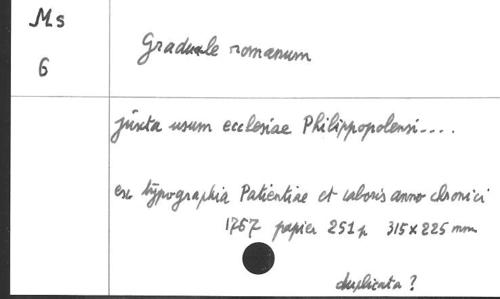 Ms
6
Graduale romanum
juxta usum ecclesiae Philippopolensi....
ex typographia Patientiae et laboris anno chronici
1767 papier 251 p 315 x 225 mm
duplicata ?